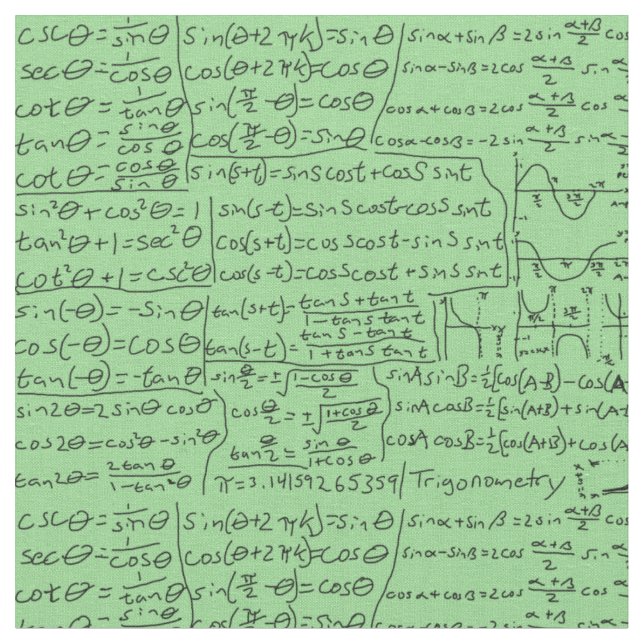 cscθ = 1/sinθ
secθ = 1/cosθ
cotθ = 1/tanθ
tanθ = sinθ/cosθ
cotθ = cosθ/sinθ
sin(θ+2πk)=sinθ
cos(θ+2πk)=cosθ
sin(π/2-θ)=cosθ
cos(π/2-θ)=sinθ
sinα+sinβ=2sin α+β/2 cos
sinα-sinβ=2cos α+β/2 sin
cosα+cosβ=2cos α+β/2 cos
cosα-cosβ=-2sin α+β/2 sin
sin²θ+cos²θ=1
tan²θ+1=sec²θ
cot²θ+1=csc²θ
sin(s+t)=sinScost+cosSsint
sin(s-t)=sinScost-cosSsint
cos(s+t)=cosScost-sinSsint
cos(s-t)=cosScost+sinSsint
π/2 π 3π/2 2π
-1
π/2 π 3π/2
-1
sin(-θ)=-sinθ
cos(-θ)=cosθ
tan(-θ)=-tanθ
tan(s+t)=tanS+tant/1-tanStant
tan(s-t)=tanS-tant/1+tanStant
π
π/2 3π/2
-1
sin2θ=2sinθcosθ
cos2θ=cos²θ-sin²θ
tan2θ=2tanθ/1-tan²θ
sin θ/2=±√1-cosθ/2
cos θ/2=±√1+cosθ/2
tan θ/2=sinθ/1+cosθ
sinAsinB=½[cos(A-B)-cos(A
sinAcosB=½[sin(A+B)+sin(A
cosAcosB=½[cos(A+B)+cos(A
π=3.14159265359 Trigonometry
cscθ = 1/sinθ
secθ = 1/cosθ
cotθ = 1/tanθ
tanθ = sinθ
sin(θ+2πk)=sinθ
cos(θ+2πk)=cosθ
sin(π/2-θ)=cosθ
cos(π/2-θ)=sinθ
sinα+sinβ=2sin α+β/2 cos
sinα-sinβ=2cos α+β/2 sin
cosα+cosβ=2cos α+β/2 cos
cosα-cosβ=-2sin α+β sin